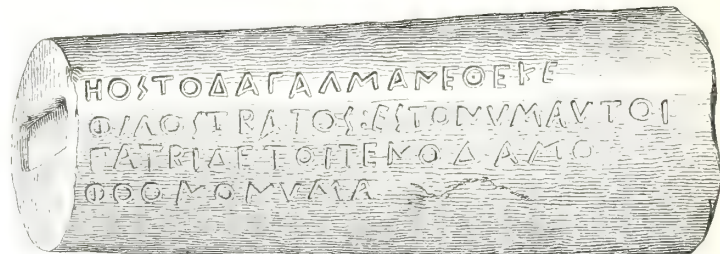 HΟΣΤΟΔΑΓΑΛΜΑΝΕΘΕΚΕ
ΦΙΛΟΣΤΡΑΤΟΣ:ΕΣΤΟΝΥΜΑΥΤΟΙ
ΠΑΤΡΙΔΕΤΟΙΤΕΝΟΔΑΜΟ
ΦΟΟΝΟΝΥΜΑ